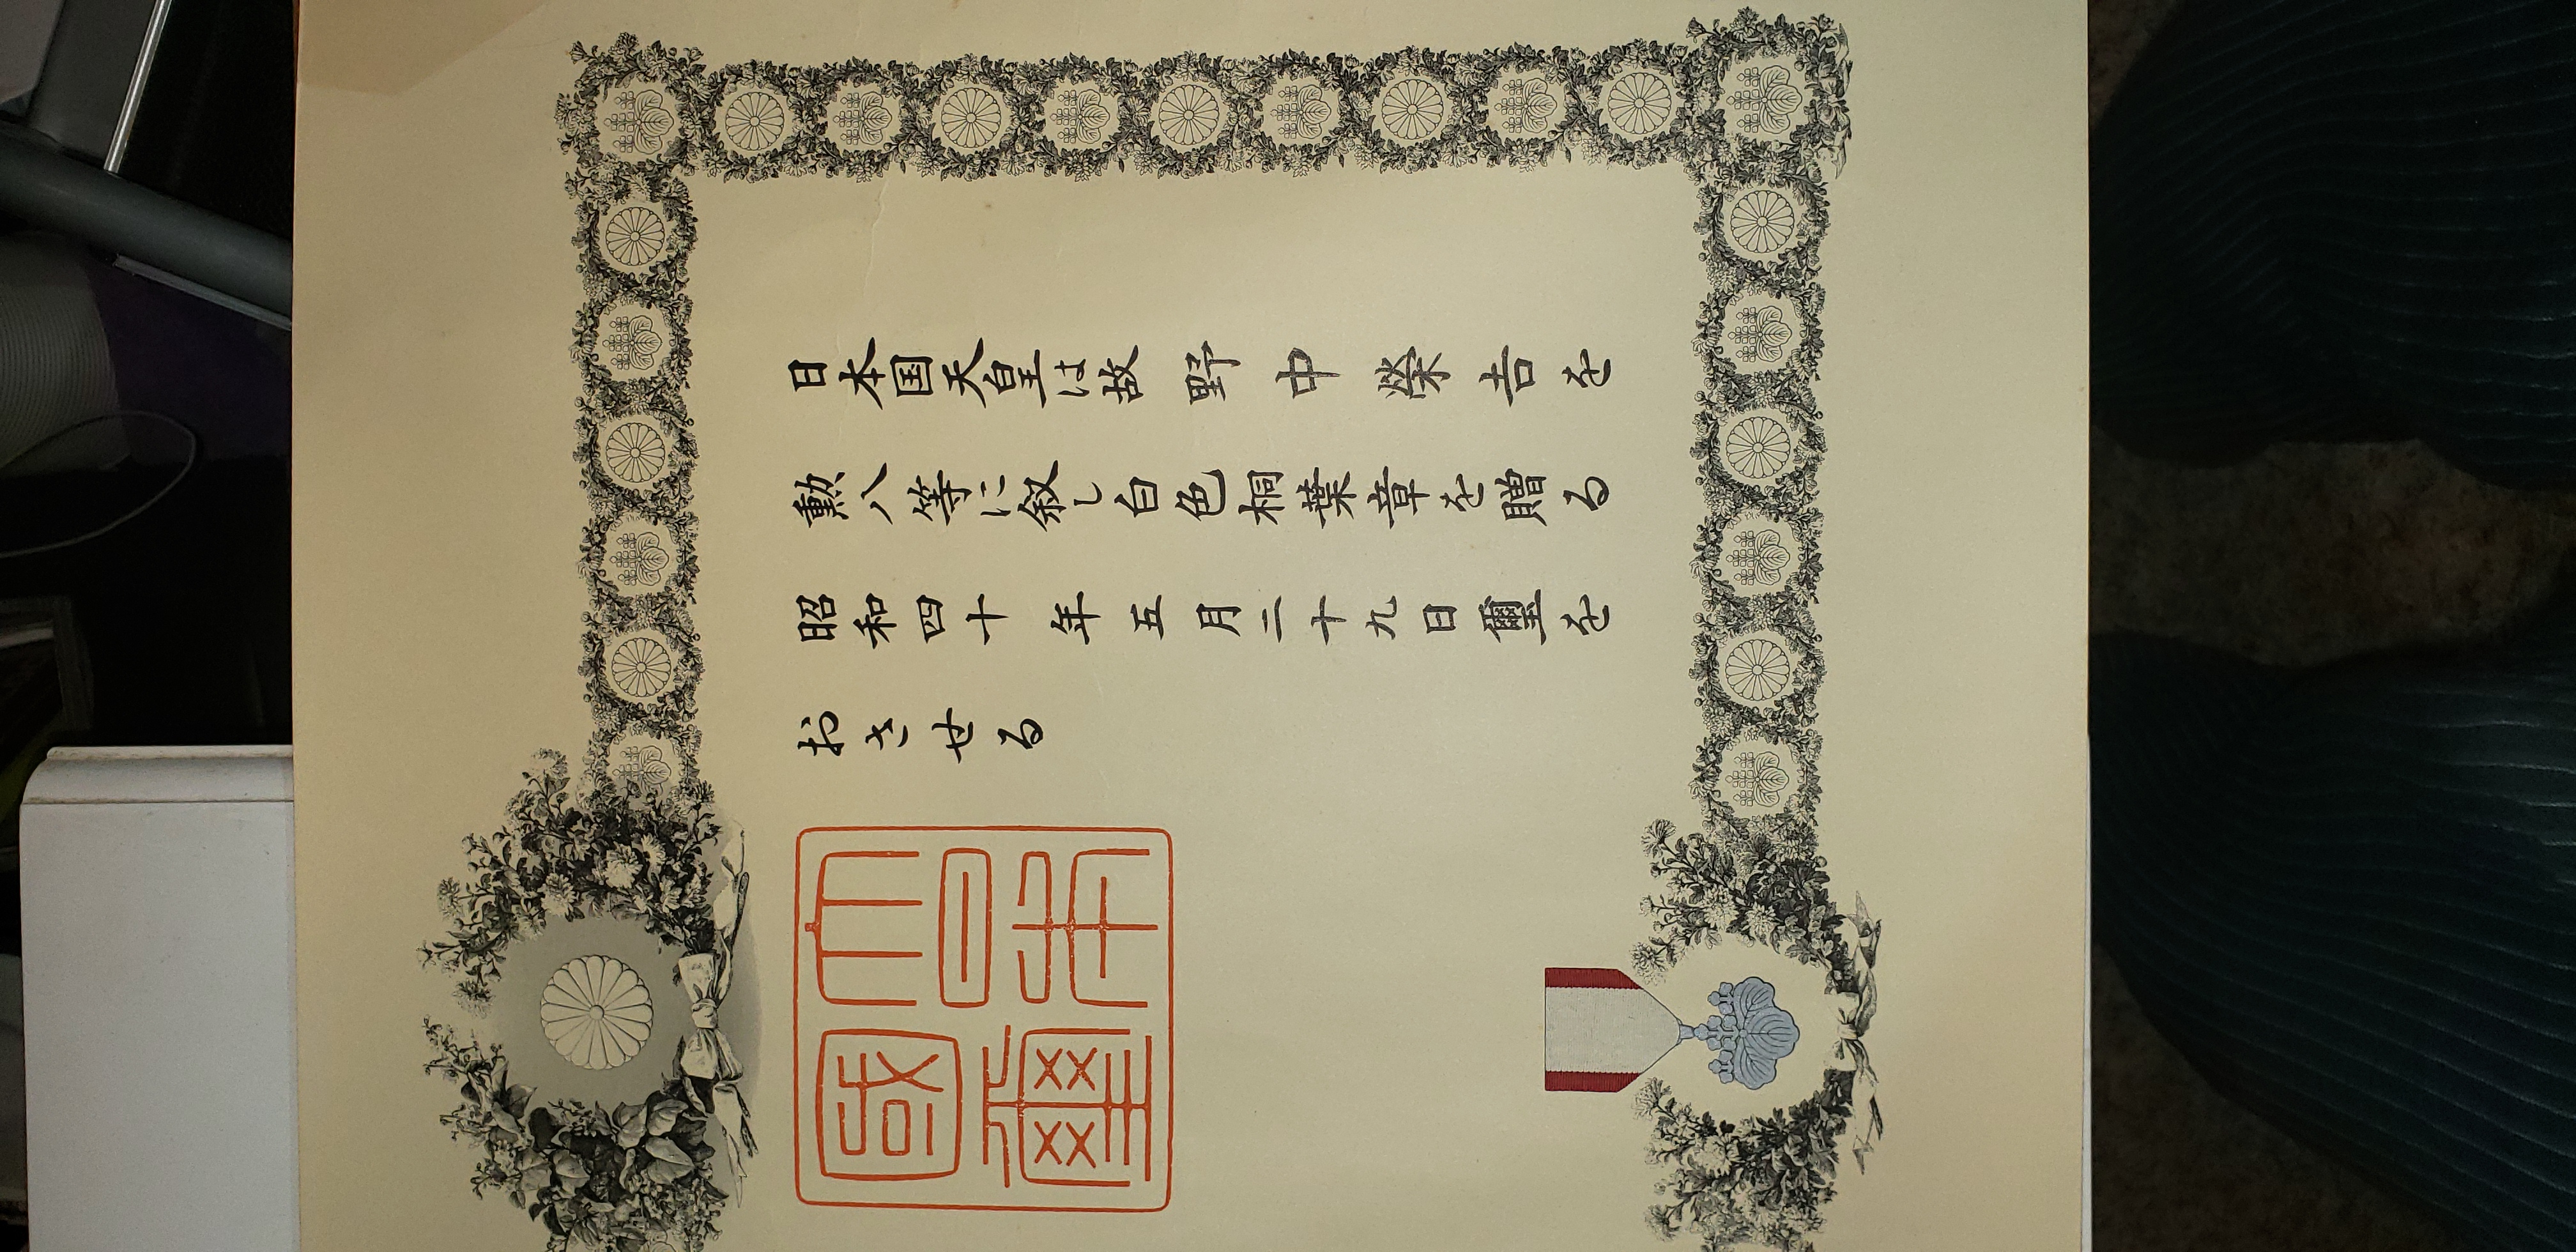 日本国天皇は故野中榮吉を
勲八等に叙し白色桐葉章を贈る
昭和四十年五月二十九日璽を
おさせる
大日本
國璽